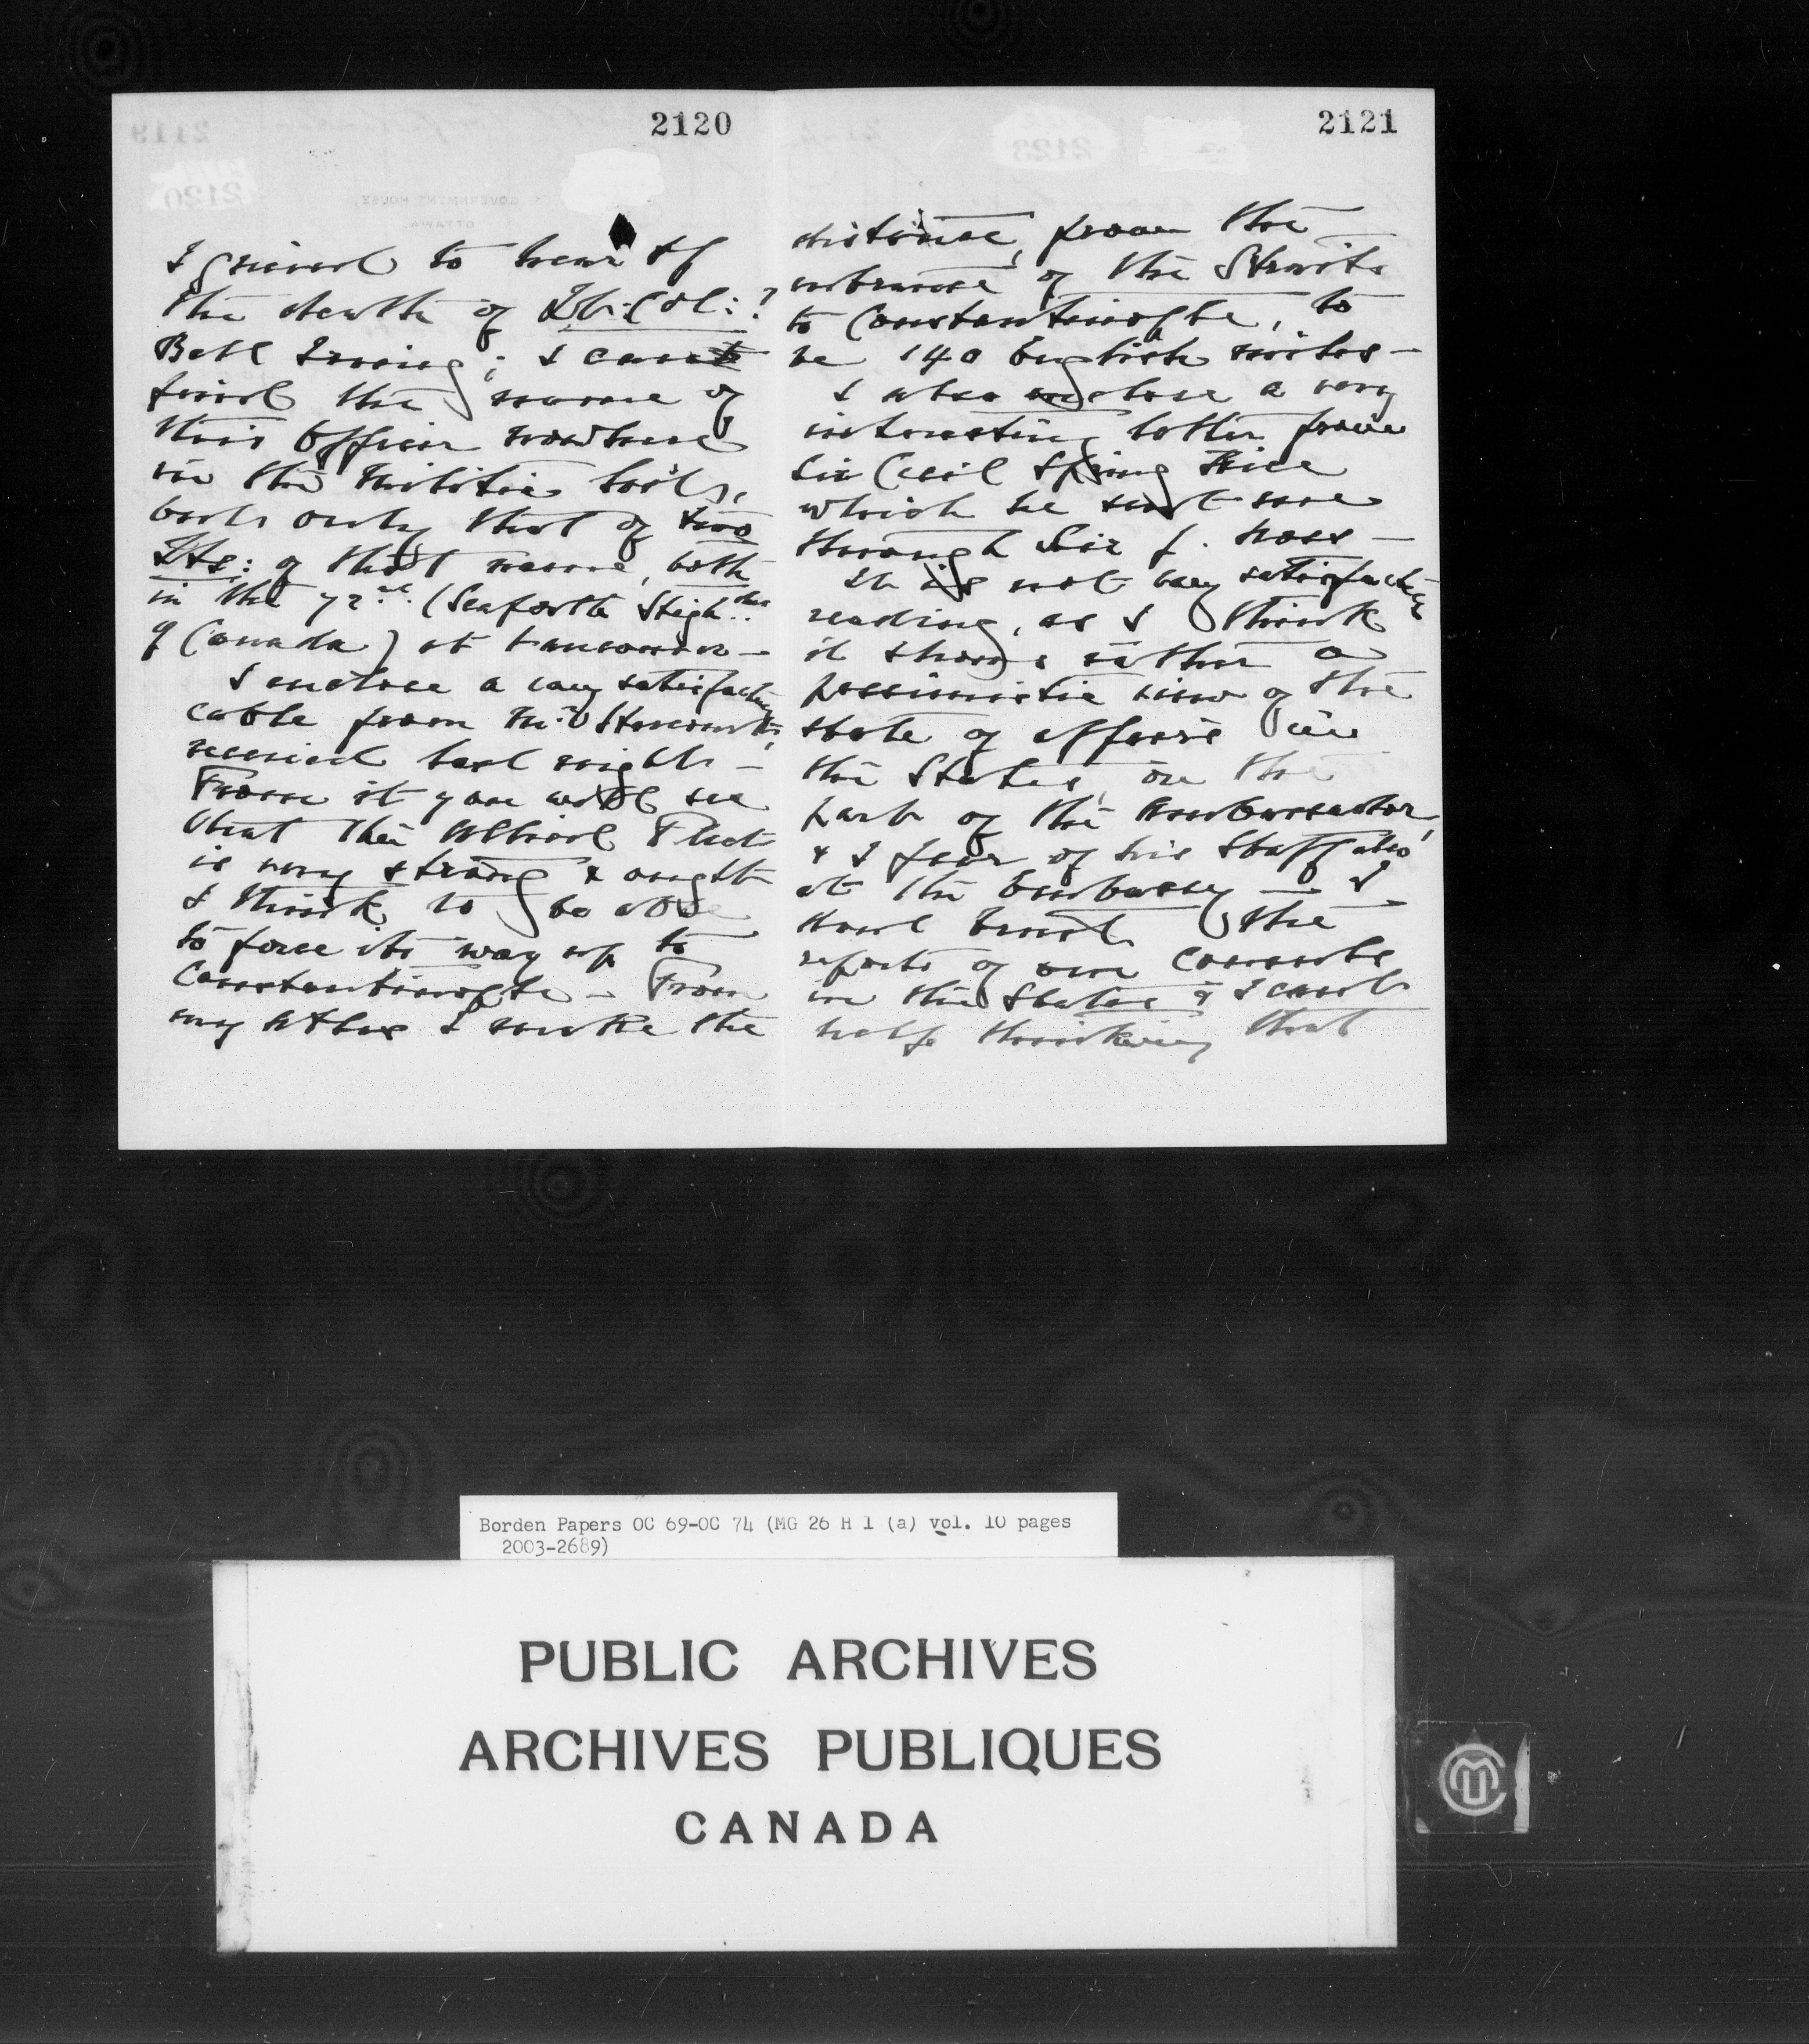 2120
I grieved to hear of
the death of Lt: Col:?
Bell Irving; I can't
find the name of
this Officer nowhere
in the Militia list,
but only that of two
Lts: of that name, both
in the 72nd (Seaforth Highdrs
of Canada) at Vancouver –
I enclose a very satisfactory
cable from Mr Harcourt,
received last night –
From it you will see
that the Allied Fleet
is very strong & ought
I think to be able
to force its way up to
Constantinople – From
my Atlas I make the
2121
distance, from the
entrance of the Straits
to Constantinople, to
be 140 English miles –
I also enclose a very
interesting letter from
Sir Cecil Spring Rice
which he sent me
through Sir J. Ross –
It is not very satisfactory
reading, as I think
it shows rather a
pessimistic view of the
state of affairs in
the States, on the
part of the Ambassador,
& I fear of his Staff also
at the Embassy – I
trust the
reports of our Consuls
in the States & I can't
help thinking that
Borden Papers OC 69-OC 74 (MG 26 H 1 (a) vol. 10 pages
2003-2689)
PUBLIC ARCHIVES
ARCHIVES PUBLIQUES
CANADA